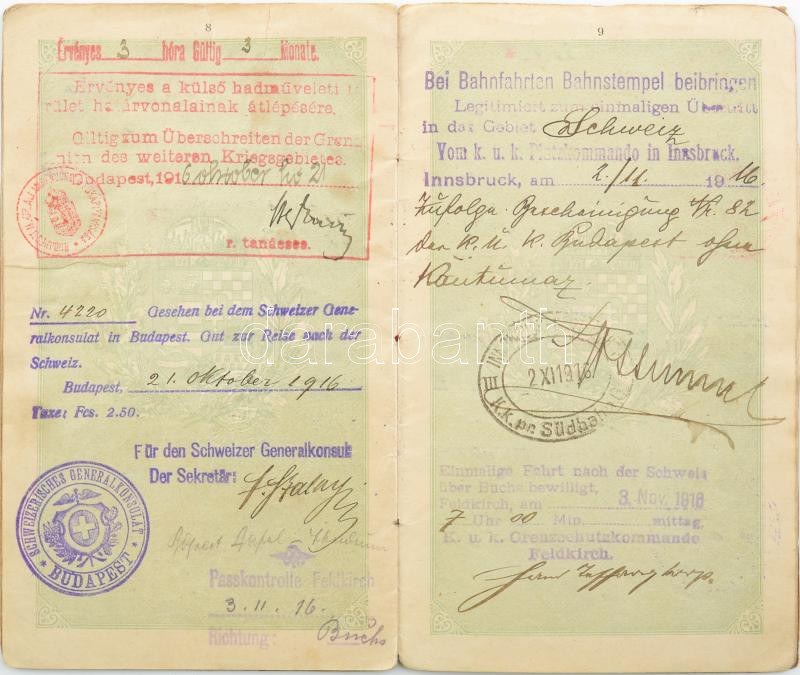 8
Érvényes 3 hóra Gültig 3 Monate.
Érvényes a külső hadműveleti te
rület határvonalainak átlépésére.
Gültig zum Überschreiten der Gren
nien des weiteren Kriegsgebietes.
Budapest, 1916 október hó 21
r. tanácsos.
Nr. 4220 Gesehen bei dem Schweizer Gene-
ralkonsulat in Budapest. Gut zur Reise nach der
Schweiz.
Budapest, 21. Oktober 1916
Taxe: Fcs. 2.50.
Für den Schweizer Generalkonsul
Der Sekretär:
SCHWEIZERISCHES GENERALKONSULAT
BUDAPEST
Passkontrolle Feldkirch
3. 11. 16.
Richtung: Buchs
9
Bei Bahnfahrten Bahnstempel beibringen
Legitimiert zum einmaligen Übertritt
in das Gebiet Schweiz
Vom k. u. k. Platzkommando in Innsbruck.
Innsbruck, am 2./11. 1916.
Zufolge Bescheinigung Nr. 82
der k. u. k. Budapest ohne
Kontumaz
2 XI 1916
K.k. pr. Südbahn
Einmalige Fahrt nach der Schweiz
über Buchs bewilligt,
Feldkirch, am 3. Nov. 1916
7 Uhr 00 Min. mittag.
K. u. k. Grenzschutzkommando
Feldkirch.
darabanth